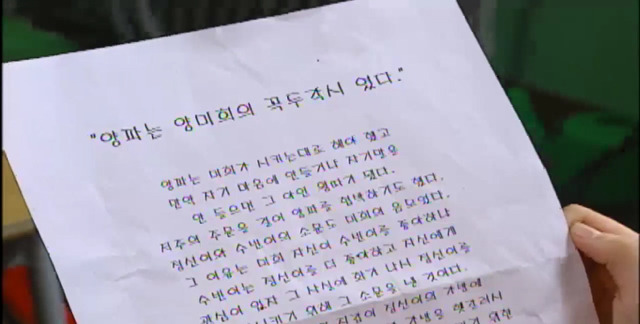 "양파는 양미희의 꼭두각시 였다."
양파는 미희가 시키는대로 해야 했고
만약 자기 마음에 안들거나 자기말을
안 들으면 그 아인 왕따가 됐다.
저주의 주문을 걸어 양파를 협박하기도 했다.
정선이와 수빈이의 소문도 미희의 음모였다.
그 이유는 미희 자신이 수빈이를 좋아하나
수빈이는 정선이를 더 좋아하고 자신에게
관심이 없자 그 사실에 화가 나서 정선이를
위해 그 소문을 낸 것이다.
정선이의